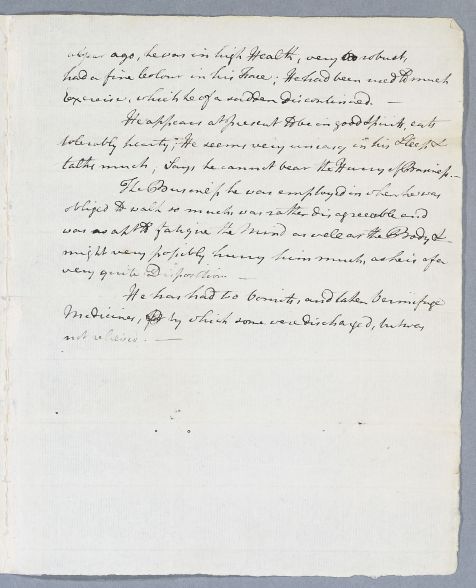 ago, he was in high Health, very robust,
had a fine Colour in his Face; He had been used to much
Exercise, which he of a sudden discontinued. —
He appears at present to be in good Spirits, eats
tolerably hearty; He seems very uneasy in his Sleep &
talks much, Says he cannot bear the Hurry of Business. —
The Business he was employed in when he was
obliged to walk so much was rather disagreeable and
was as apt to fatigue the Mind as well as the Body &
might very possibly hurry him much, as he is of a
very quite Disposition —
He has had two Vomits, and taken Vermifuge
Medicines, by which some were discharged, but was
not relieved. —